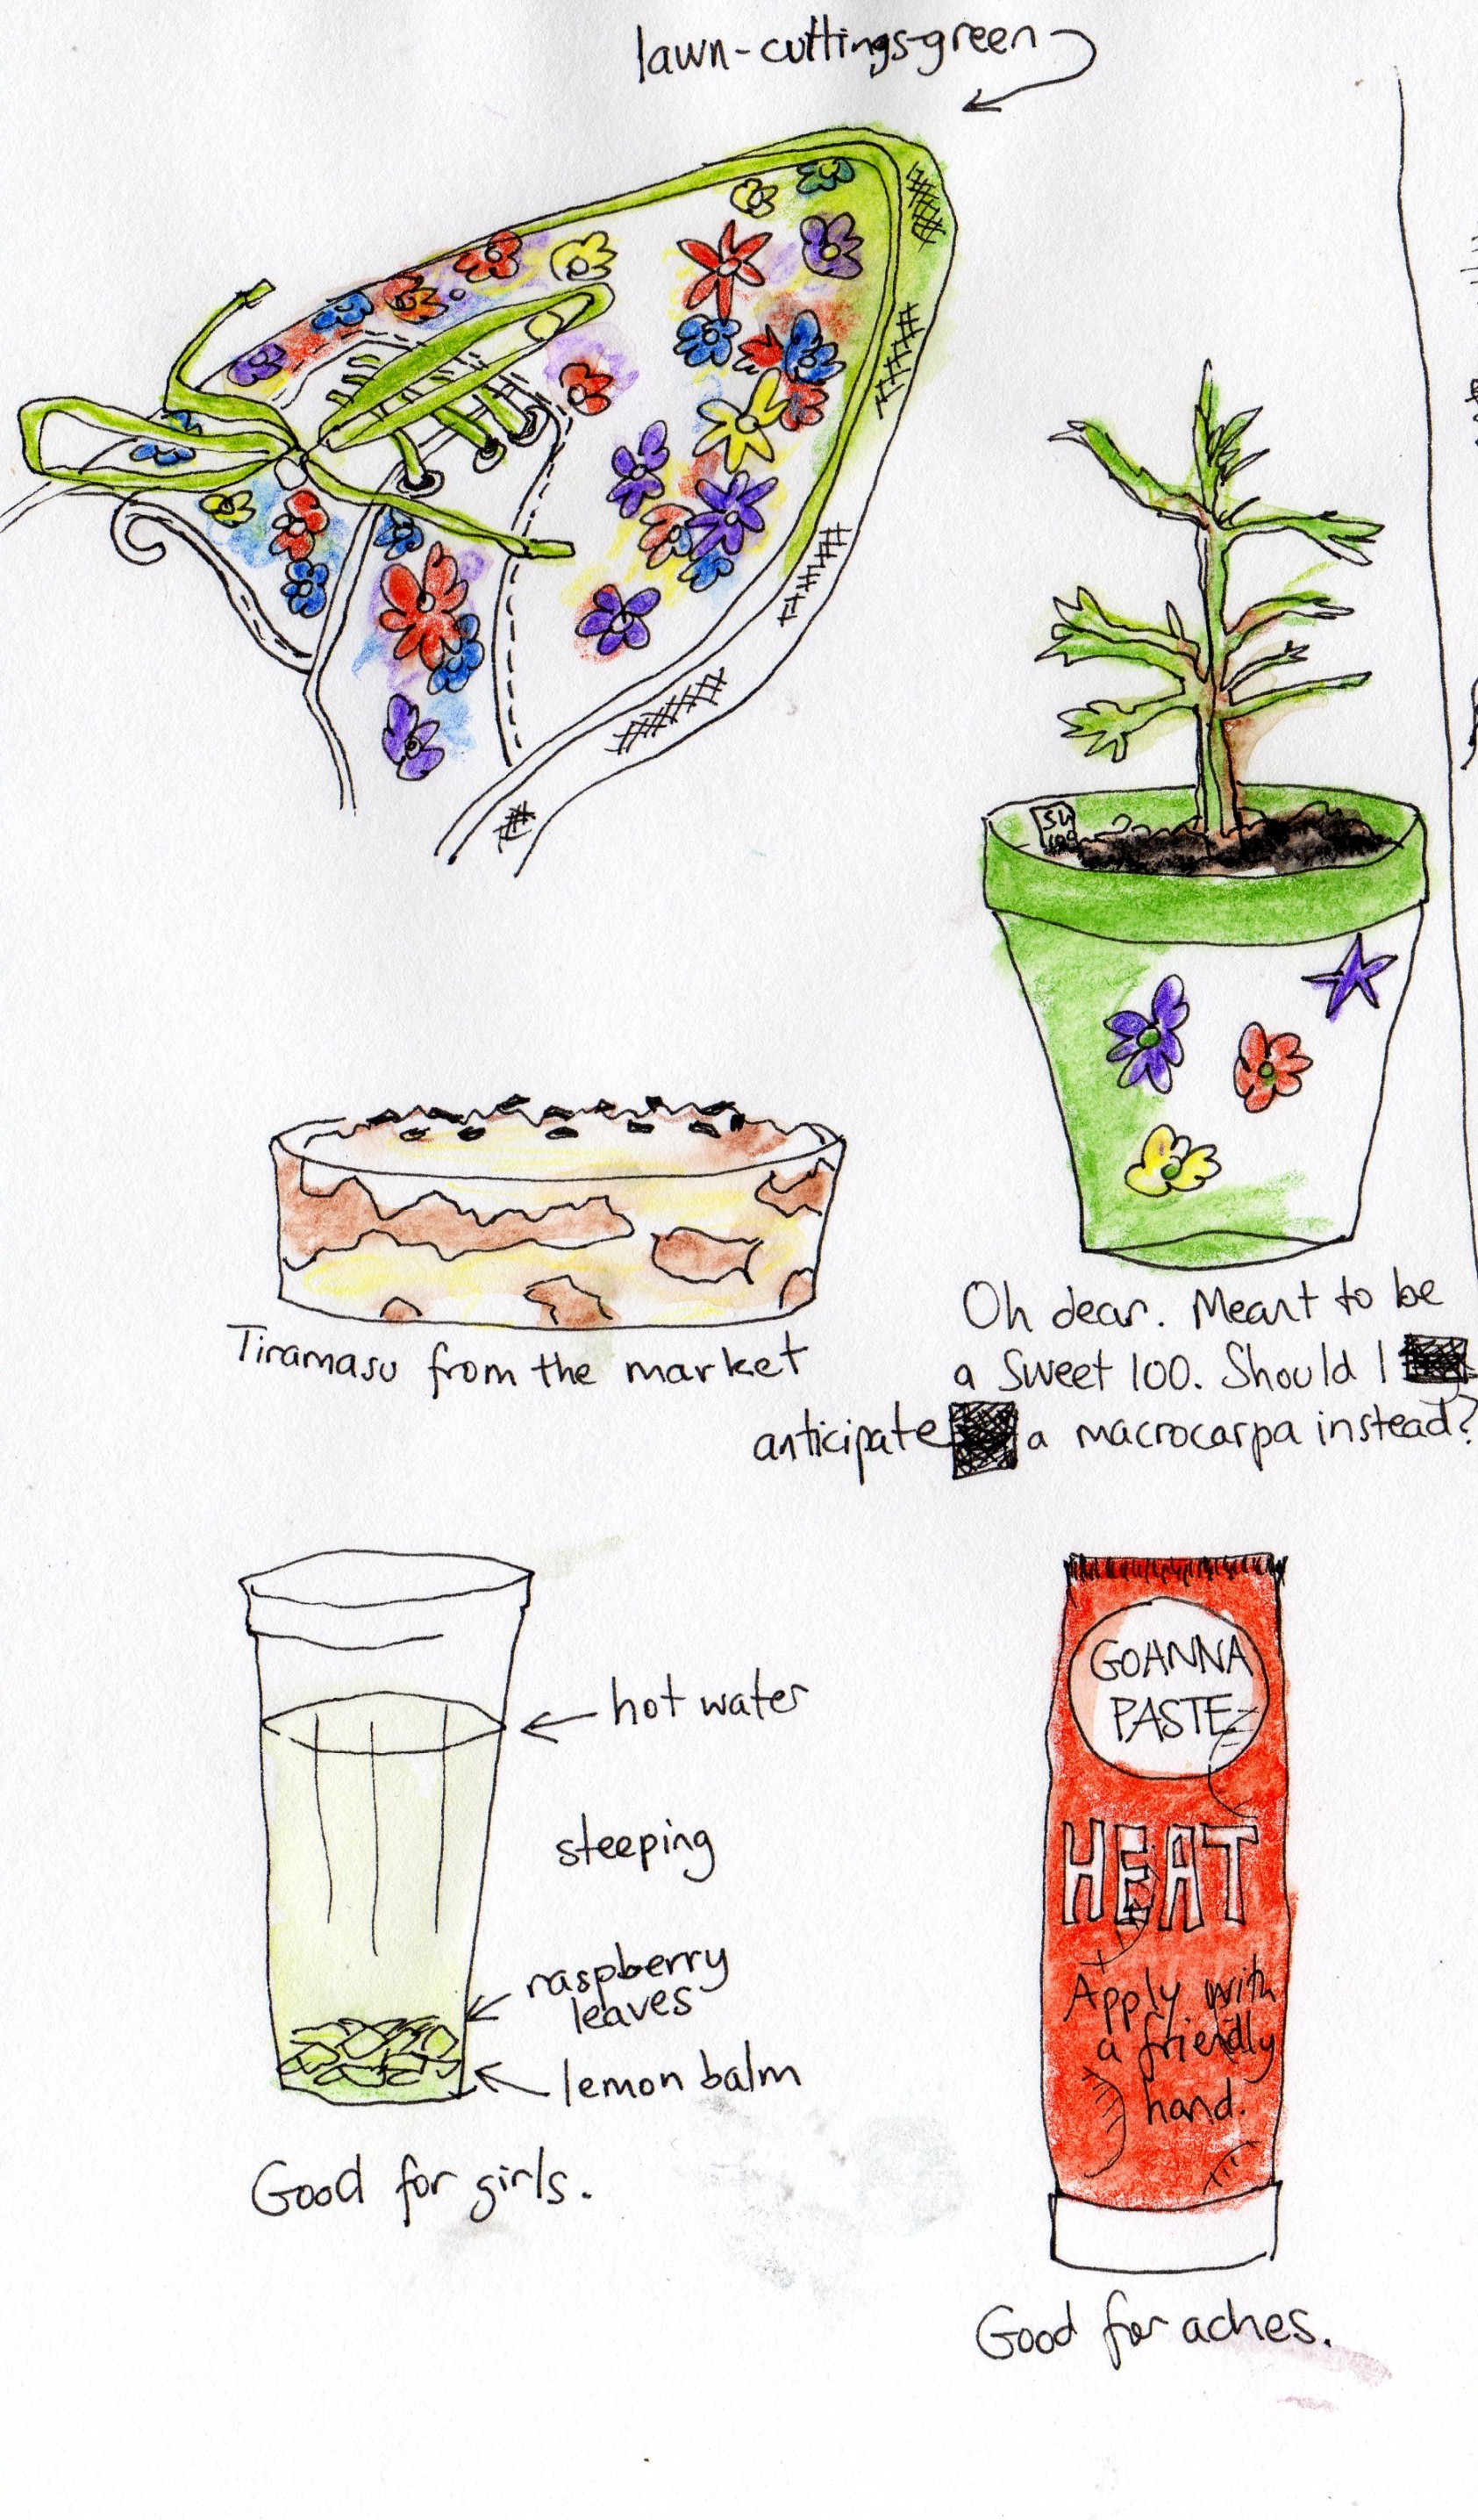 lawn-cuttings-green
Tiramasu from the market
Oh dear. Meant to be
a Sweet 100. Should I
anticipate a macrocarpa instead?
hot water
steeping
raspberry
leaves
lemon balm
Good for girls.
GOANNA
PASTE
HEAT
Apply with
a friendly
hand.
Good for aches.